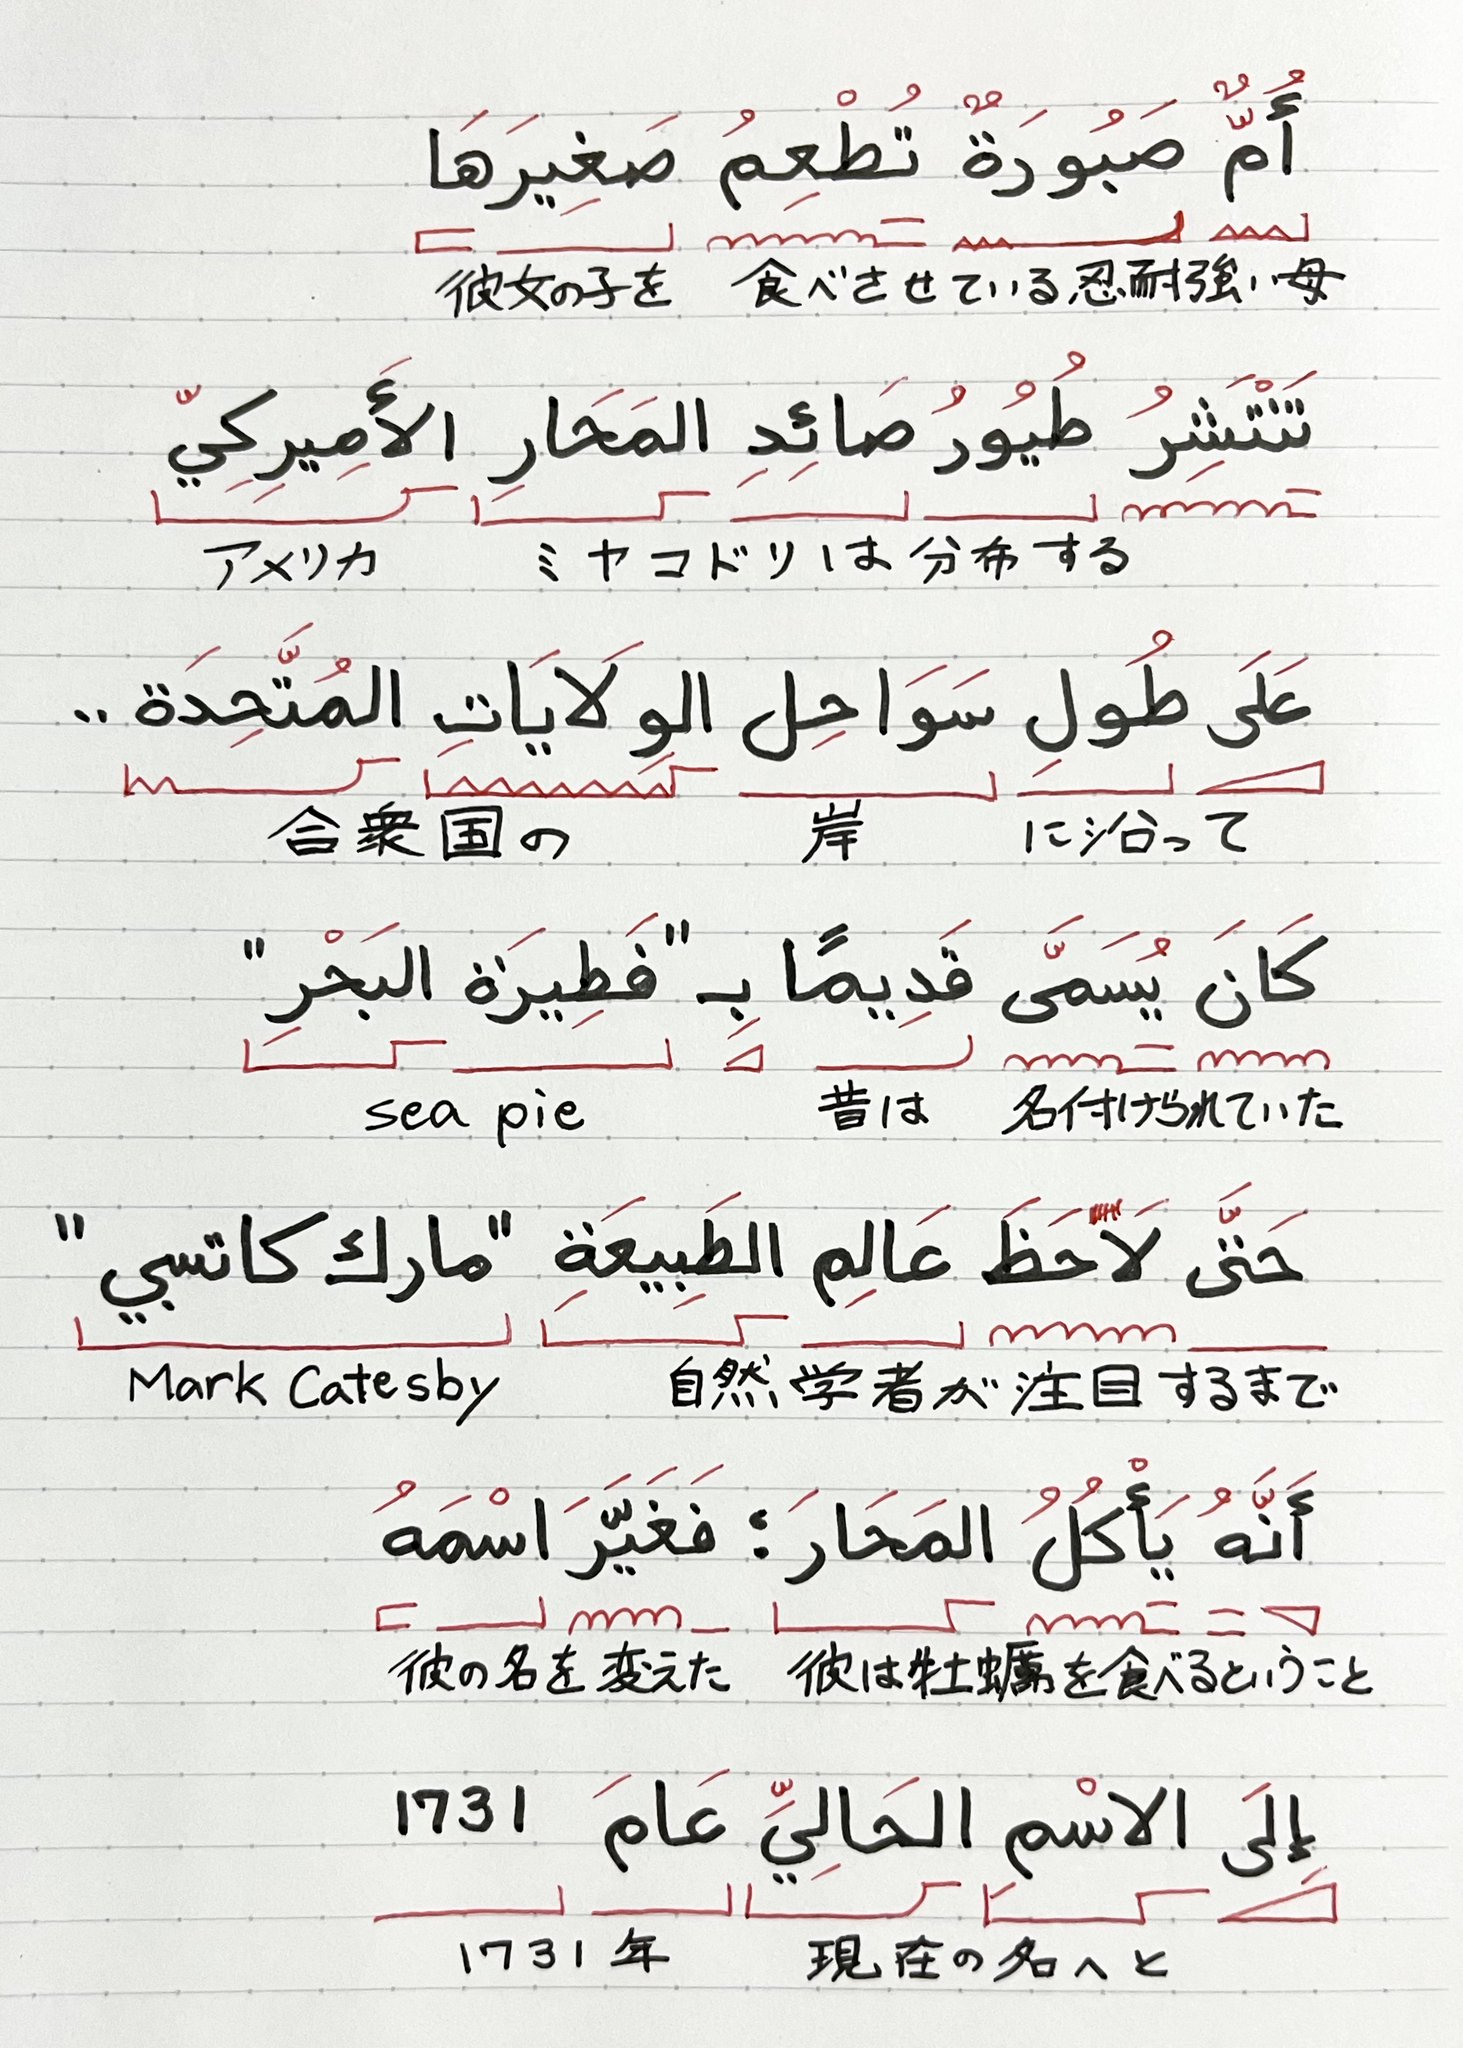 أُمٌّ صَبُورَةٌ تُطْعِمُ صَغِيرَهَا
彼女の子を 食べさせている忍耐強い母
تَنْتَشِرُ طُيُورُ صَائِدِ المَحَارِ الأَمِيرِكِيِّ
アメリカ ミヤコドリは分布する
عَلَى طُولِ سَوَاحِلِ الوِلَايَاتِ المُتَّحِدَة ..
合衆国の 岸 に沿って
كَانَ يُسَمَّى قَدِيمًا بِـ "فَطِيرَة البَحْرِ"
sea pie 昔は 名付けられていた
حَتَّى لَاحَظَ عَالِمِ الطَبِيعَةِ "مارك كاتسبي"
Mark Catesby 自然学者が注目するまで
أَنَّهُ يَأْكُلُ المَحَارَ؛ فَغَيَّرَ اسْمَهُ
彼の名を変えた 彼は牡蠣を食べるということ
إِلَى الاسْمِ الحَالِيِّ عَامَ 1731
1731年 現在の名へと